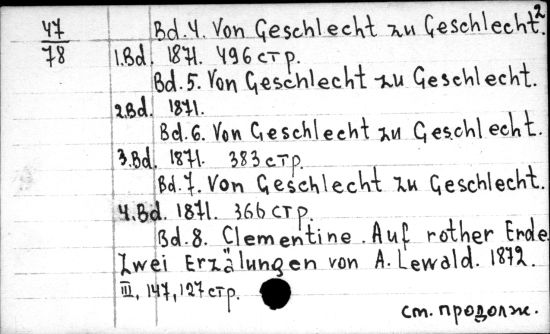 2
47
78
Bd. 4. Von Geschlecht zu Geschlecht.
1.Bd. 1871. 496 стр.
Bd. 5. Von Geschlecht zu Geschlecht.
2.Bd. 1871.
Bd. 6. Von Geschlecht zu Geschlecht.
3.Bd. 1871. 383 стр.
Bd. 7. Von Geschlecht zu Geschlecht.
4.Bd. 1871. 366 стр.
Bd. 8. Clementine. Auf rother Erde
Zwei Erzälungen von A. Lewald. 1872.
III, 147, 127 стр.
см. продолж.